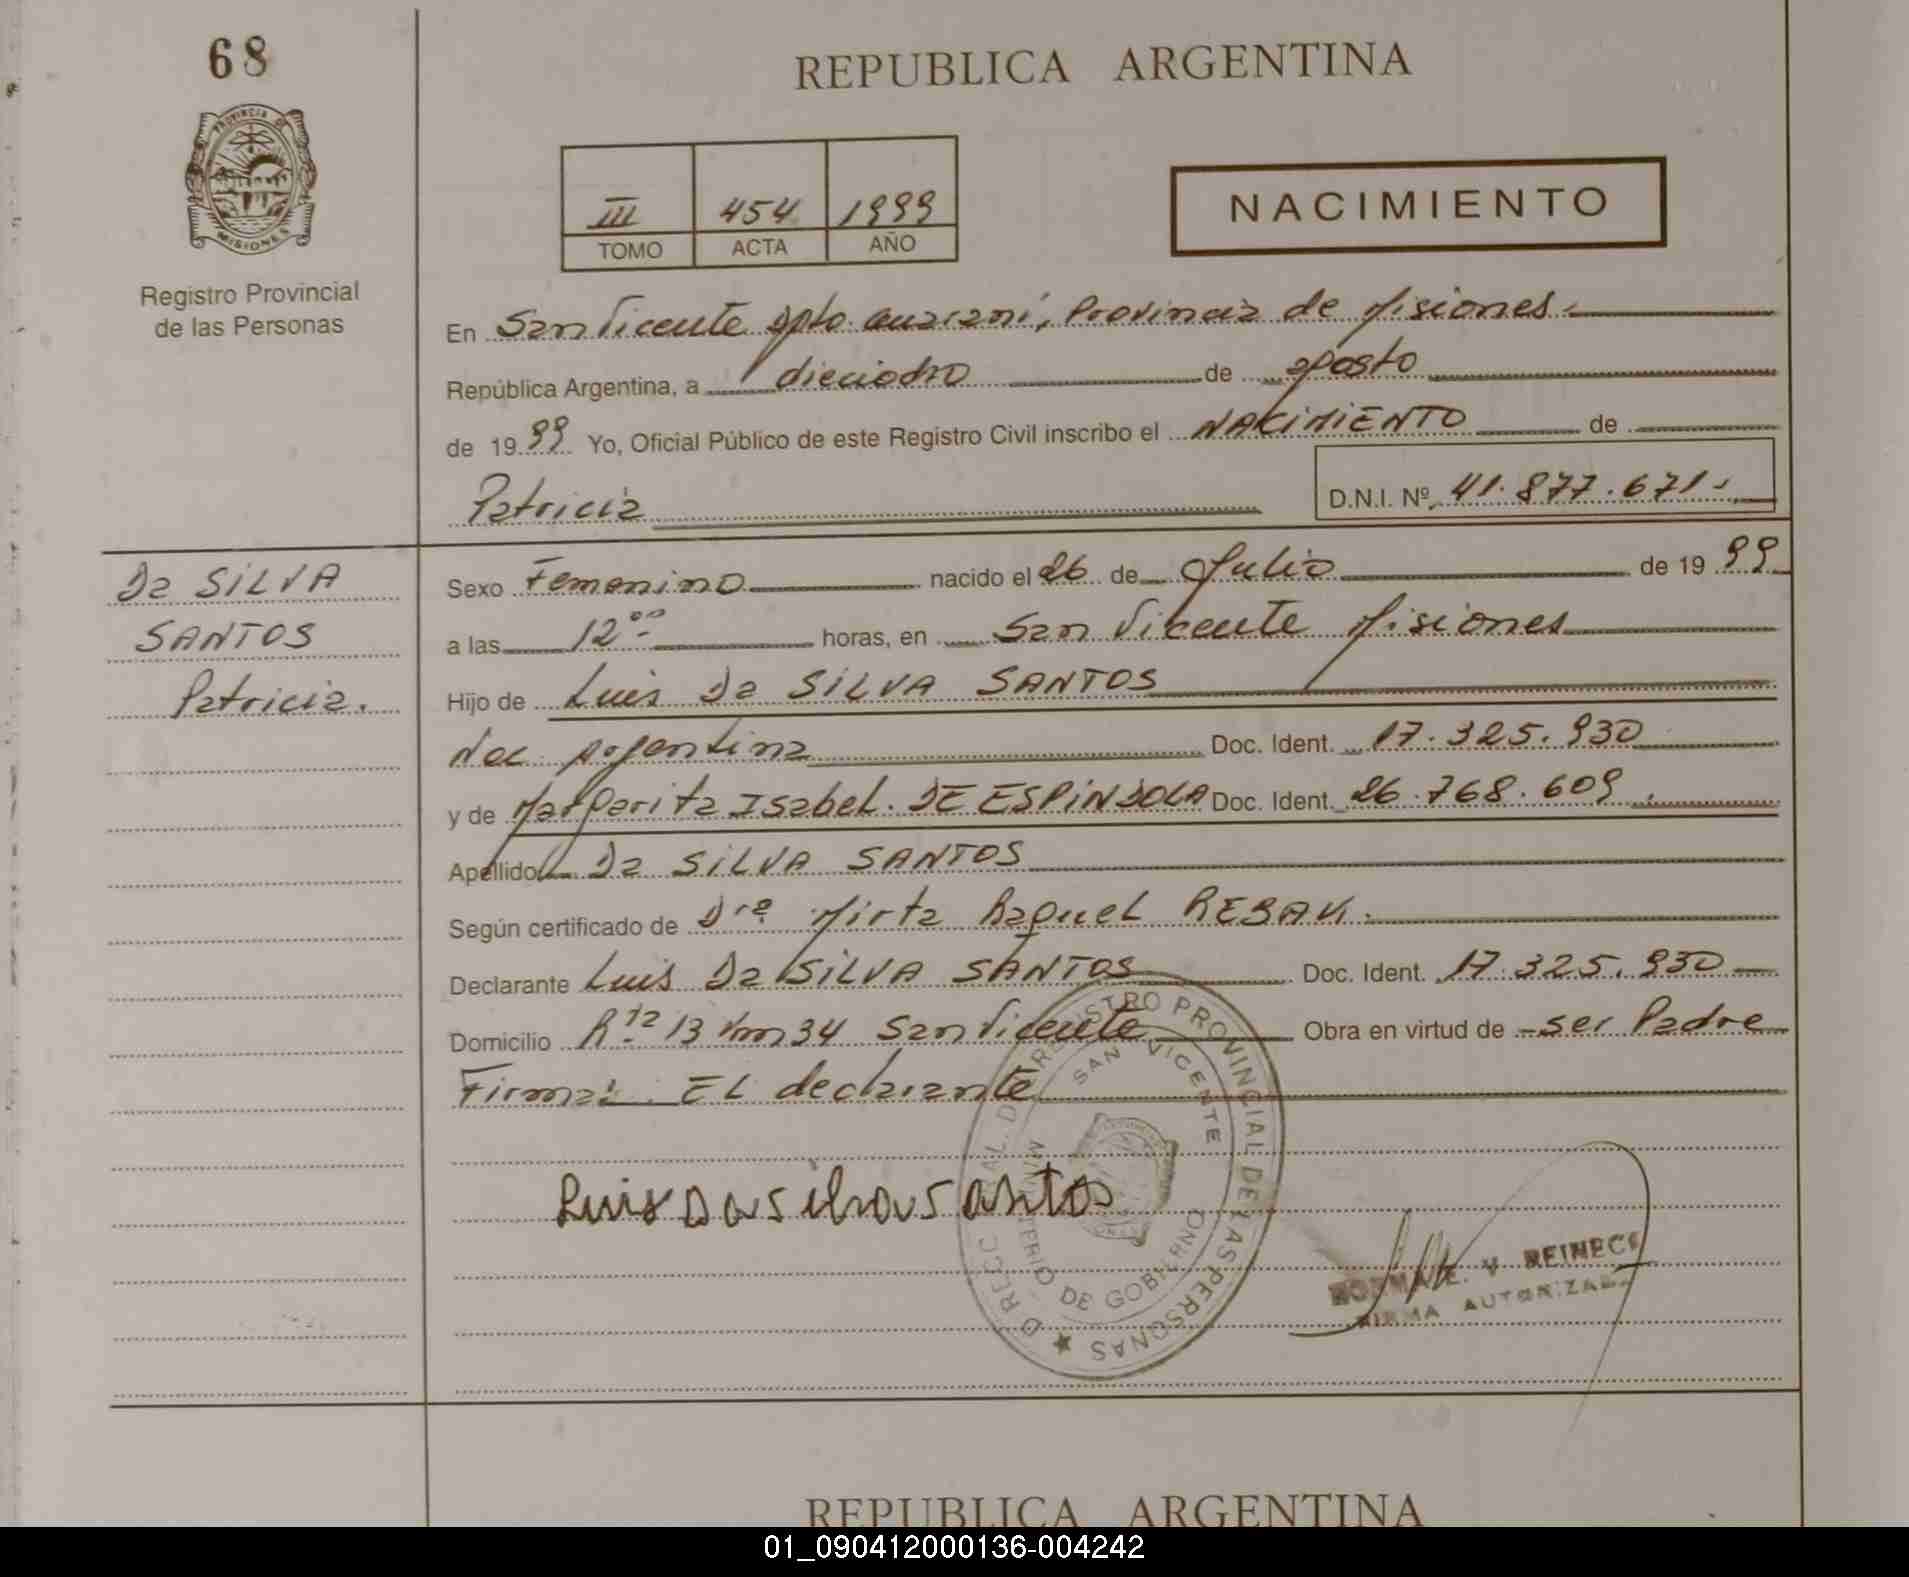 68
REPUBLICA ARGENTINA
PROVINCIA DE
MISIONES
Registro Provincial
de las Personas
III 454 1999
TOMO ACTA AÑO
NACIMIENTO
En San Vicente Dpto. Guaraní, Provincia de Misiones.
República Argentina, a dieciocho de agosto
de 1999 Yo, Oficial Público de este Registro Civil inscribo el NACIMIENTO de
Patricia
D.N.I. Nº 41.877.671.
Da SILVA
SANTOS
Patricia.
Sexo Femenino nacido el 26 de Julio de 1999
a las 12:00 horas, en San Vicente Misiones
Hijo de Luis Da SILVA SANTOS
Nac. Argentina Doc. Ident. 17.325.930
y de Margarita Isabel. DE ESPINDOLA Doc. Ident. 26.768.609.
Apellido Da SILVA SANTOS
Según certificado de Dra Mirta Raquel
Declarante Luis Da SILVA SANTOS Doc. Ident. 17.325.930
Domicilio Rta 13 Km 34 San Vicente Obra en virtud de ser Padre
Firma: EL declarante
REGISTRO PROVINCIAL DE LAS PERSONAS
SAN VICENTE
MINISTERIO DE GOBIERNO
Luis Da silva Santos
NORMA E. V. REINECK
FIRMA AUTORIZADA
REPUBLICA ARGENTINA
01_090412000136-004242